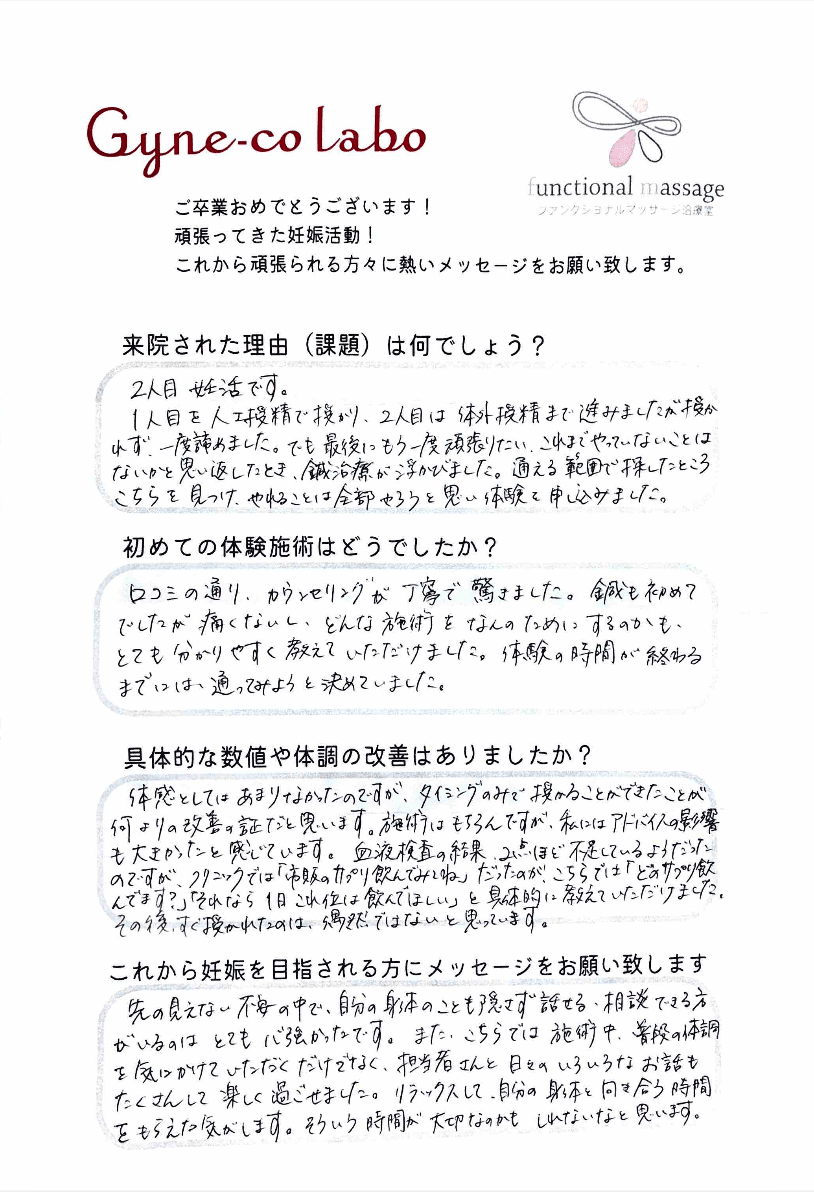 Gyne-co labo
functional massage
ファンクショナルマッサージ治療室
ご卒業おめでとうございます！
頑張ってきた妊娠活動！
これから頑張られる方々に熱いメッセージをお願い致します。
来院された理由（課題）は何でしょう？
2人目 妊活です。
1人目を人工授精で授かり、2人目は体外授精まで進みましたが授か
れず、一度諦めました。でも最後にもう一度頑張りたい、これまでやっていないことは
ないかと思い返したとき、鍼治療が浮かびました。通える範囲で探したところ
こちらを見つけ、やれることは全部やろうと思い体験を申し込みました。
初めての体験施術はどうでしたか？
口コミの通り、カウンセリングが丁寧で驚きました。鍼も初めて
でしたが痛くないし、どんな施術をなんのためにするのかも、
とても分かりやすく教えていただけました。体験の時間が終わる
までには、通ってみようと決めていました。
具体的な数値や体調の改善はありましたか？
体感としてはあまりなかったのですが、タイミングのみで授かることができたことが
何よりの改善の証だと思います。施術はもちろんですが、私にはアドバイスの影響
も大きかったと感じています。血液検査の結果、2点ほど不足しているようだった
のですが、クリニックでは「市販のサプリ飲んでみてね」だったのが、こちらでは「どのサプリ飲
んでます？」「それなら1日これ位は飲んでほしい」と具体的に教えていただけました。
その後すぐ授かれたのは、偶然ではないと思っています。
これから妊娠を目指される方にメッセージをお願い致します
先の見えない不安の中で、自分の身体のことも隠さず話せる、相談できる方
がいるのはとても心強かったです。また、こちらでは施術中、普段の体調
を気にかけていただくだけでなく、担当者さんと日々のいろいろなお話も
たくさんして楽しく過ごせました。リラックスして、自分の身体と向き合う時間
をもらえた気がします。そういう時間が大切なのかもしれないなと思います。